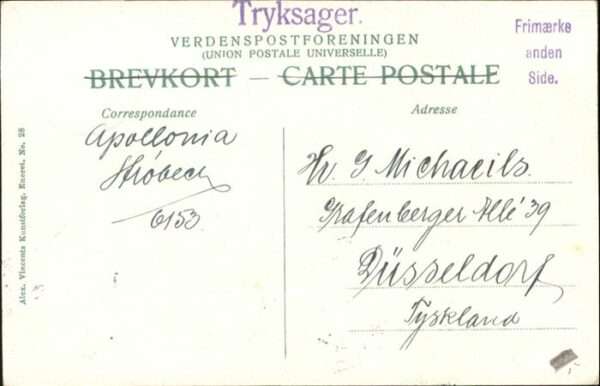 Tryksager.
Frimærke
anden
Side.
VERDENSPOSTFORENINGEN
(UNION POSTALE UNIVERSELLE)
BREVKORT — CARTE POSTALE
Correspondance
Adresse
Apollonia
Ströbeck
6153
Hr. J Michaeils.
Grafenberger Allé 39
Düsseldorf
Tyskland
Alex. Vincents Kunstforlag, Eneret, No. 28